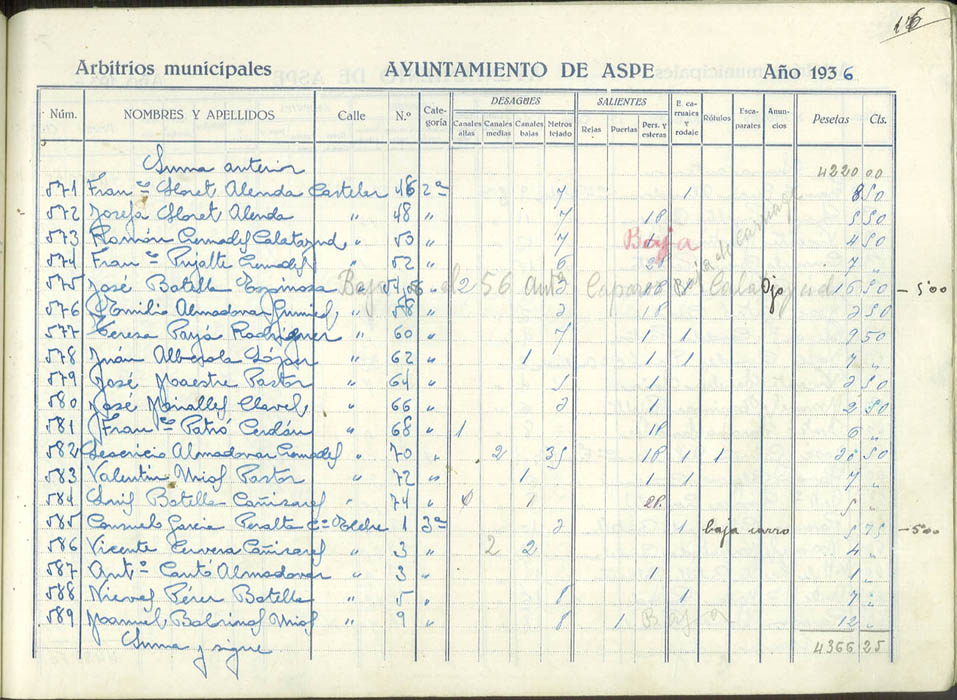 16
Arbitrios municipales AYUNTAMIENTO DE ASPE Año 1936
Núm. NOMBRES Y APELLIDOS Calle N.º Categoría DESAGÜES Canales altas Canales medias Canales bajas Metros tejado SALIENTES Rejas Puertas Pers. y esteras E. carruajes y rodaje Rótulos Escaparates Anuncios Pesetas Cts.
Suma anterior 4220 00
571 Fran.co Lloret Alenda Castelar 46 2ª 7 1 8 50
572 Josefa Lloret Alenda " 48 " 7 1P 5 50
573 Ramón Cremades Calatayud " 50 " 7 Baja 4 50
574 Fran.co Pujalte Cremades " 52 " 6 2P 7 "
575 José Botella Espinosa " 2 Ojo 16 50 – 5'00
576 Emilio Almodovar " 58 " 2 1P 2 50
577 Teresa Payá Rodriguez " 60 " 7 1 1 9 50
578 Juán Alberola López " 62 " 1 1 1 7 "
579 José Maestre Pastor " 64 " 5 1 2 50
580 José Miralles Clavel " 66 " 2 1 2 50
581 Fran.co Patró Cerdán " 68 " 1 1P 6 "
582 Almodovar Cremades " 70 " 2 35 1P 1 1 50
583 Valentin Mira Pastor " 72 " 1 1 1 7 "
584 Luis Botella Cañizares " 74 " 1 2P. 5 "
585 Consuelo Garcia Peralta c.ª Elche 1 3ª 2 1 baja carro 5 75 – 5'00
586 Vicente Cervera Cañizares " 3 " 2 2 4 "
587 Ant.º Cantó Almodovar " 3 " 1 1 "
588 Nieves Pérez Botella " 5 " 8 1 7 "
589 Manuel Mira " 9 " 8 1 Baja 12 "
Suma y sigue 4366 25